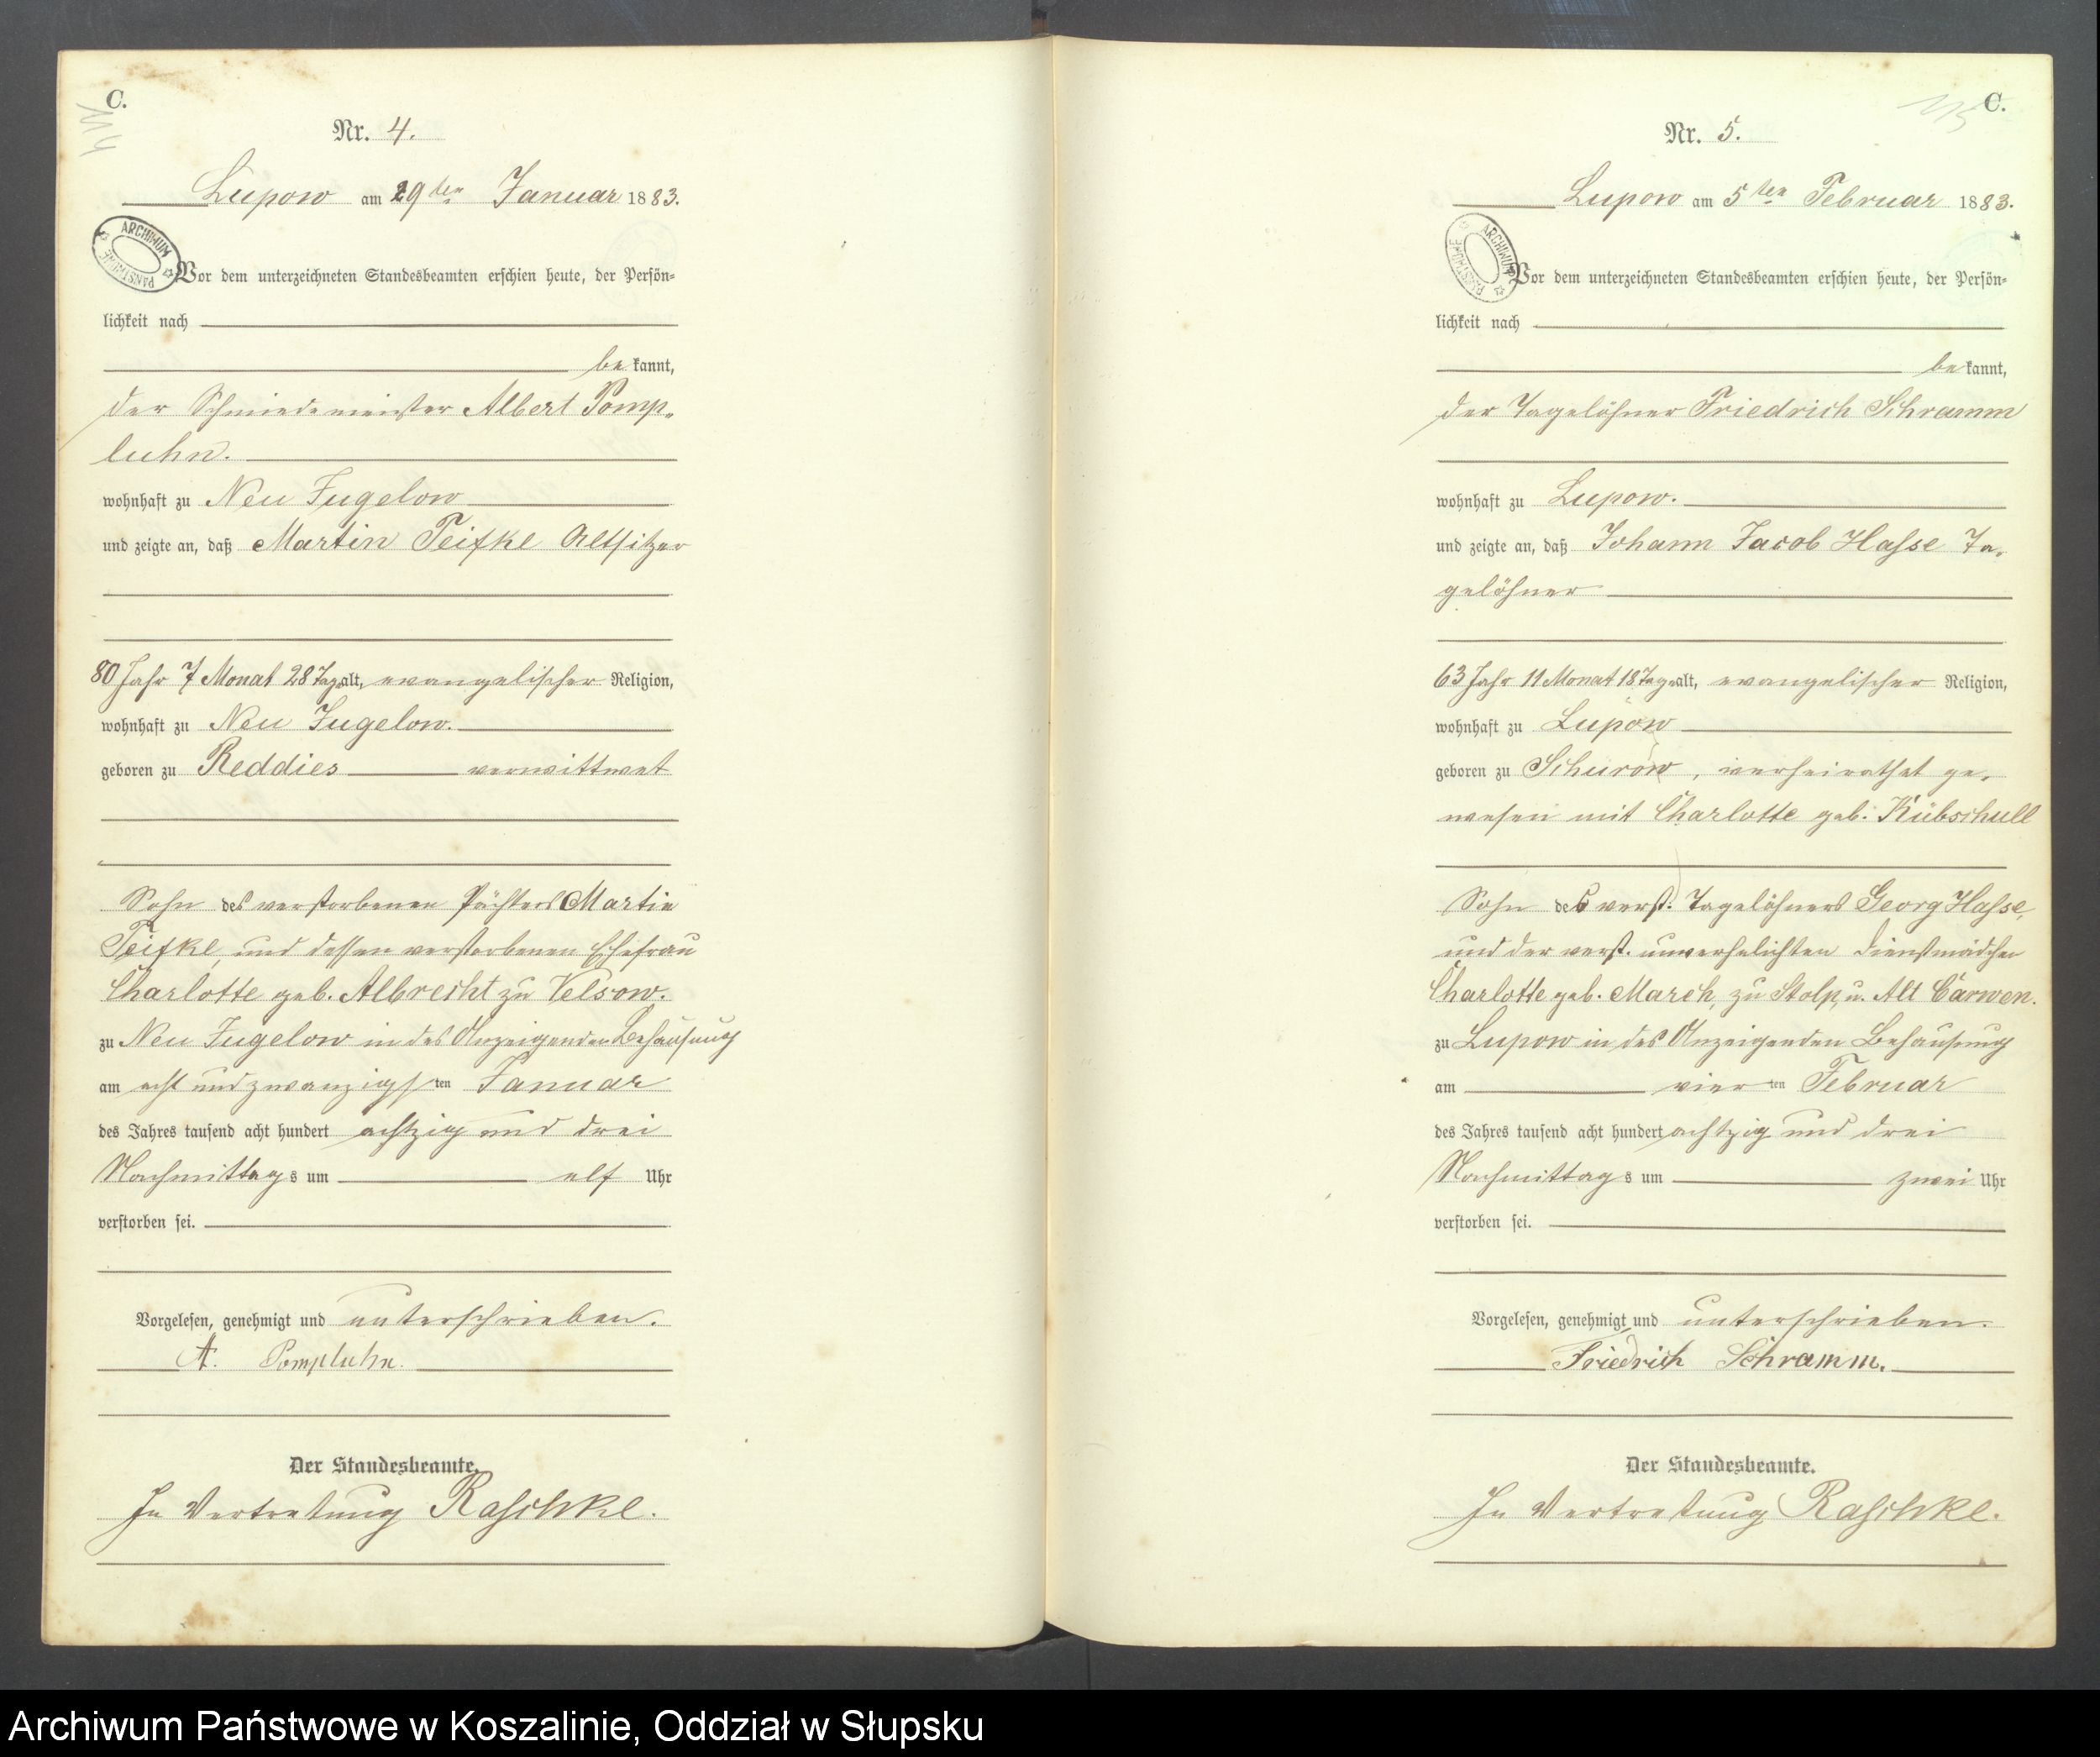 C.
114
Nr. 4.
Lupow am 29ten Januar 1883.
ARCHIWUM PAŃSTWOWE
Vor dem unterzeichneten Standesbeamten erschien heute, der Persön=
lichkeit nach
be kannt,
der Schmiedemeister Albert Pomp=
luhn.
wohnhaft zu Neu Jugelow
und zeigte an, daß Martin Teifke Altsitzer
80 Jahr 7 Monat 28 Tage alt, evangelischer Religion,
wohnhaft zu Neu Jugelow.
geboren zu Reddies verwittwet
Sohn des verstorbenen Pächters Martin
Teifke, und dessen verstorbenen Ehefrau
Charlotte geb. Albrecht zu Velsow.
zu Neu Jugelow in des Anzeigenden Behausung
am acht und zwanzigsten Januar
des Jahres tausend acht hundert achtzig und drei
Nachmittags um elf Uhr
verstorben sei.
Vorgelesen, genehmigt und unterschrieben.
A. Pompluhn.
Der Standesbeamte.
In Vertretung Raschke.
C.
115
Nr. 5.
Lupow am 5ten Februar 1883.
ARCHIWUM PAŃSTWOWE
Vor dem unterzeichneten Standesbeamten erschien heute, der Persön=
lichkeit nach
be kannt,
der Tagelöhner Friedrich Schramm
wohnhaft zu Lupow.
und zeigte an, daß Johann Jacob Hasse Ta=
gelöhner
63 Jahr 11 Monat 18 Tage alt, evangelischer Religion,
wohnhaft zu Lupow
geboren zu Schurow, verheirathet ge=
wesen mit Charlotte geb. Kübschull
Sohn des verst. Tagelöhners Georg Hasse,
und der verst. unverehelichten Dienstmädchen
Charlotte geb. March, zu Stolp, u. Alt Carwen.
zu Lupow in des Anzeigenden Behausung
am vierten Februar
des Jahres tausend acht hundert achtzig und drei
Nachmittags um zwei Uhr
verstorben sei.
Vorgelesen, genehmigt und unterschrieben.
Friedrich Schramm.
Der Standesbeamte.
In Vertretung Raschke.
Archiwum Państwowe w Koszalinie, Oddział w Słupsku